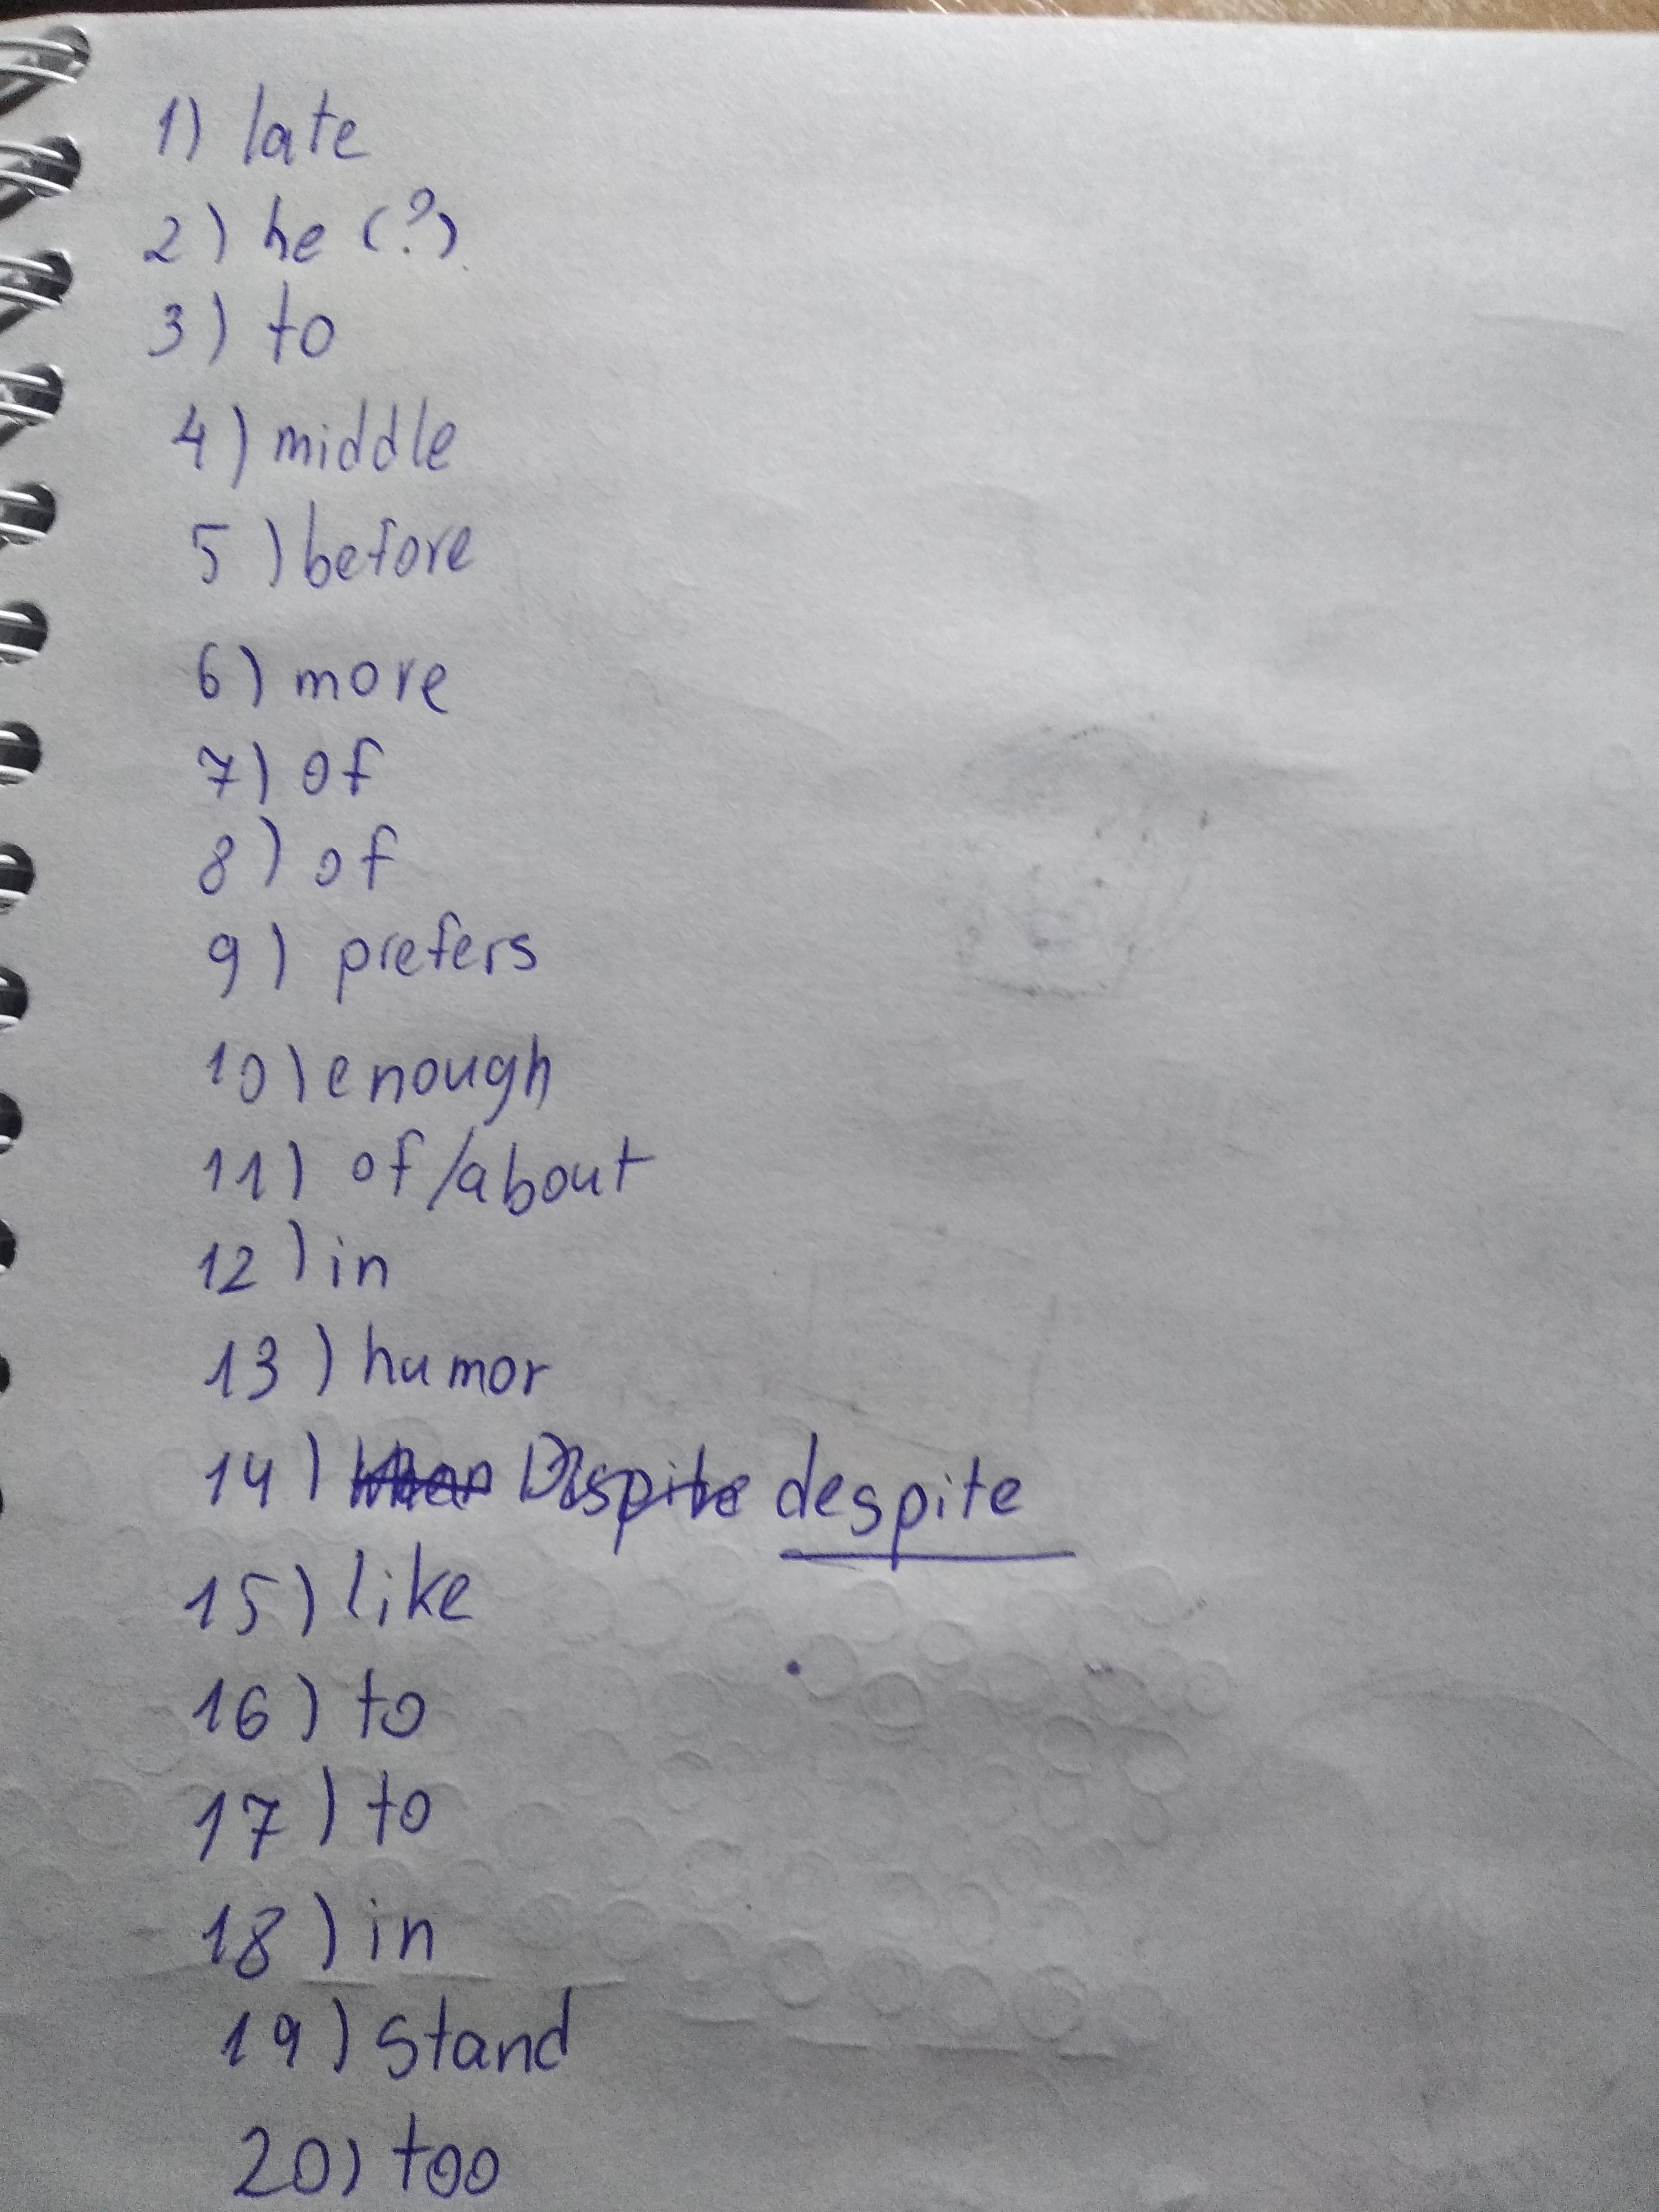 1) late
2) he (?)
3) to
4) middle
5) before
6) more
7) of
8) of
9) prefers
10) enough
11) of/about
12) in
13) humor
14) despite
15) like
16) to
17) to
18) in
19) stand
20) too